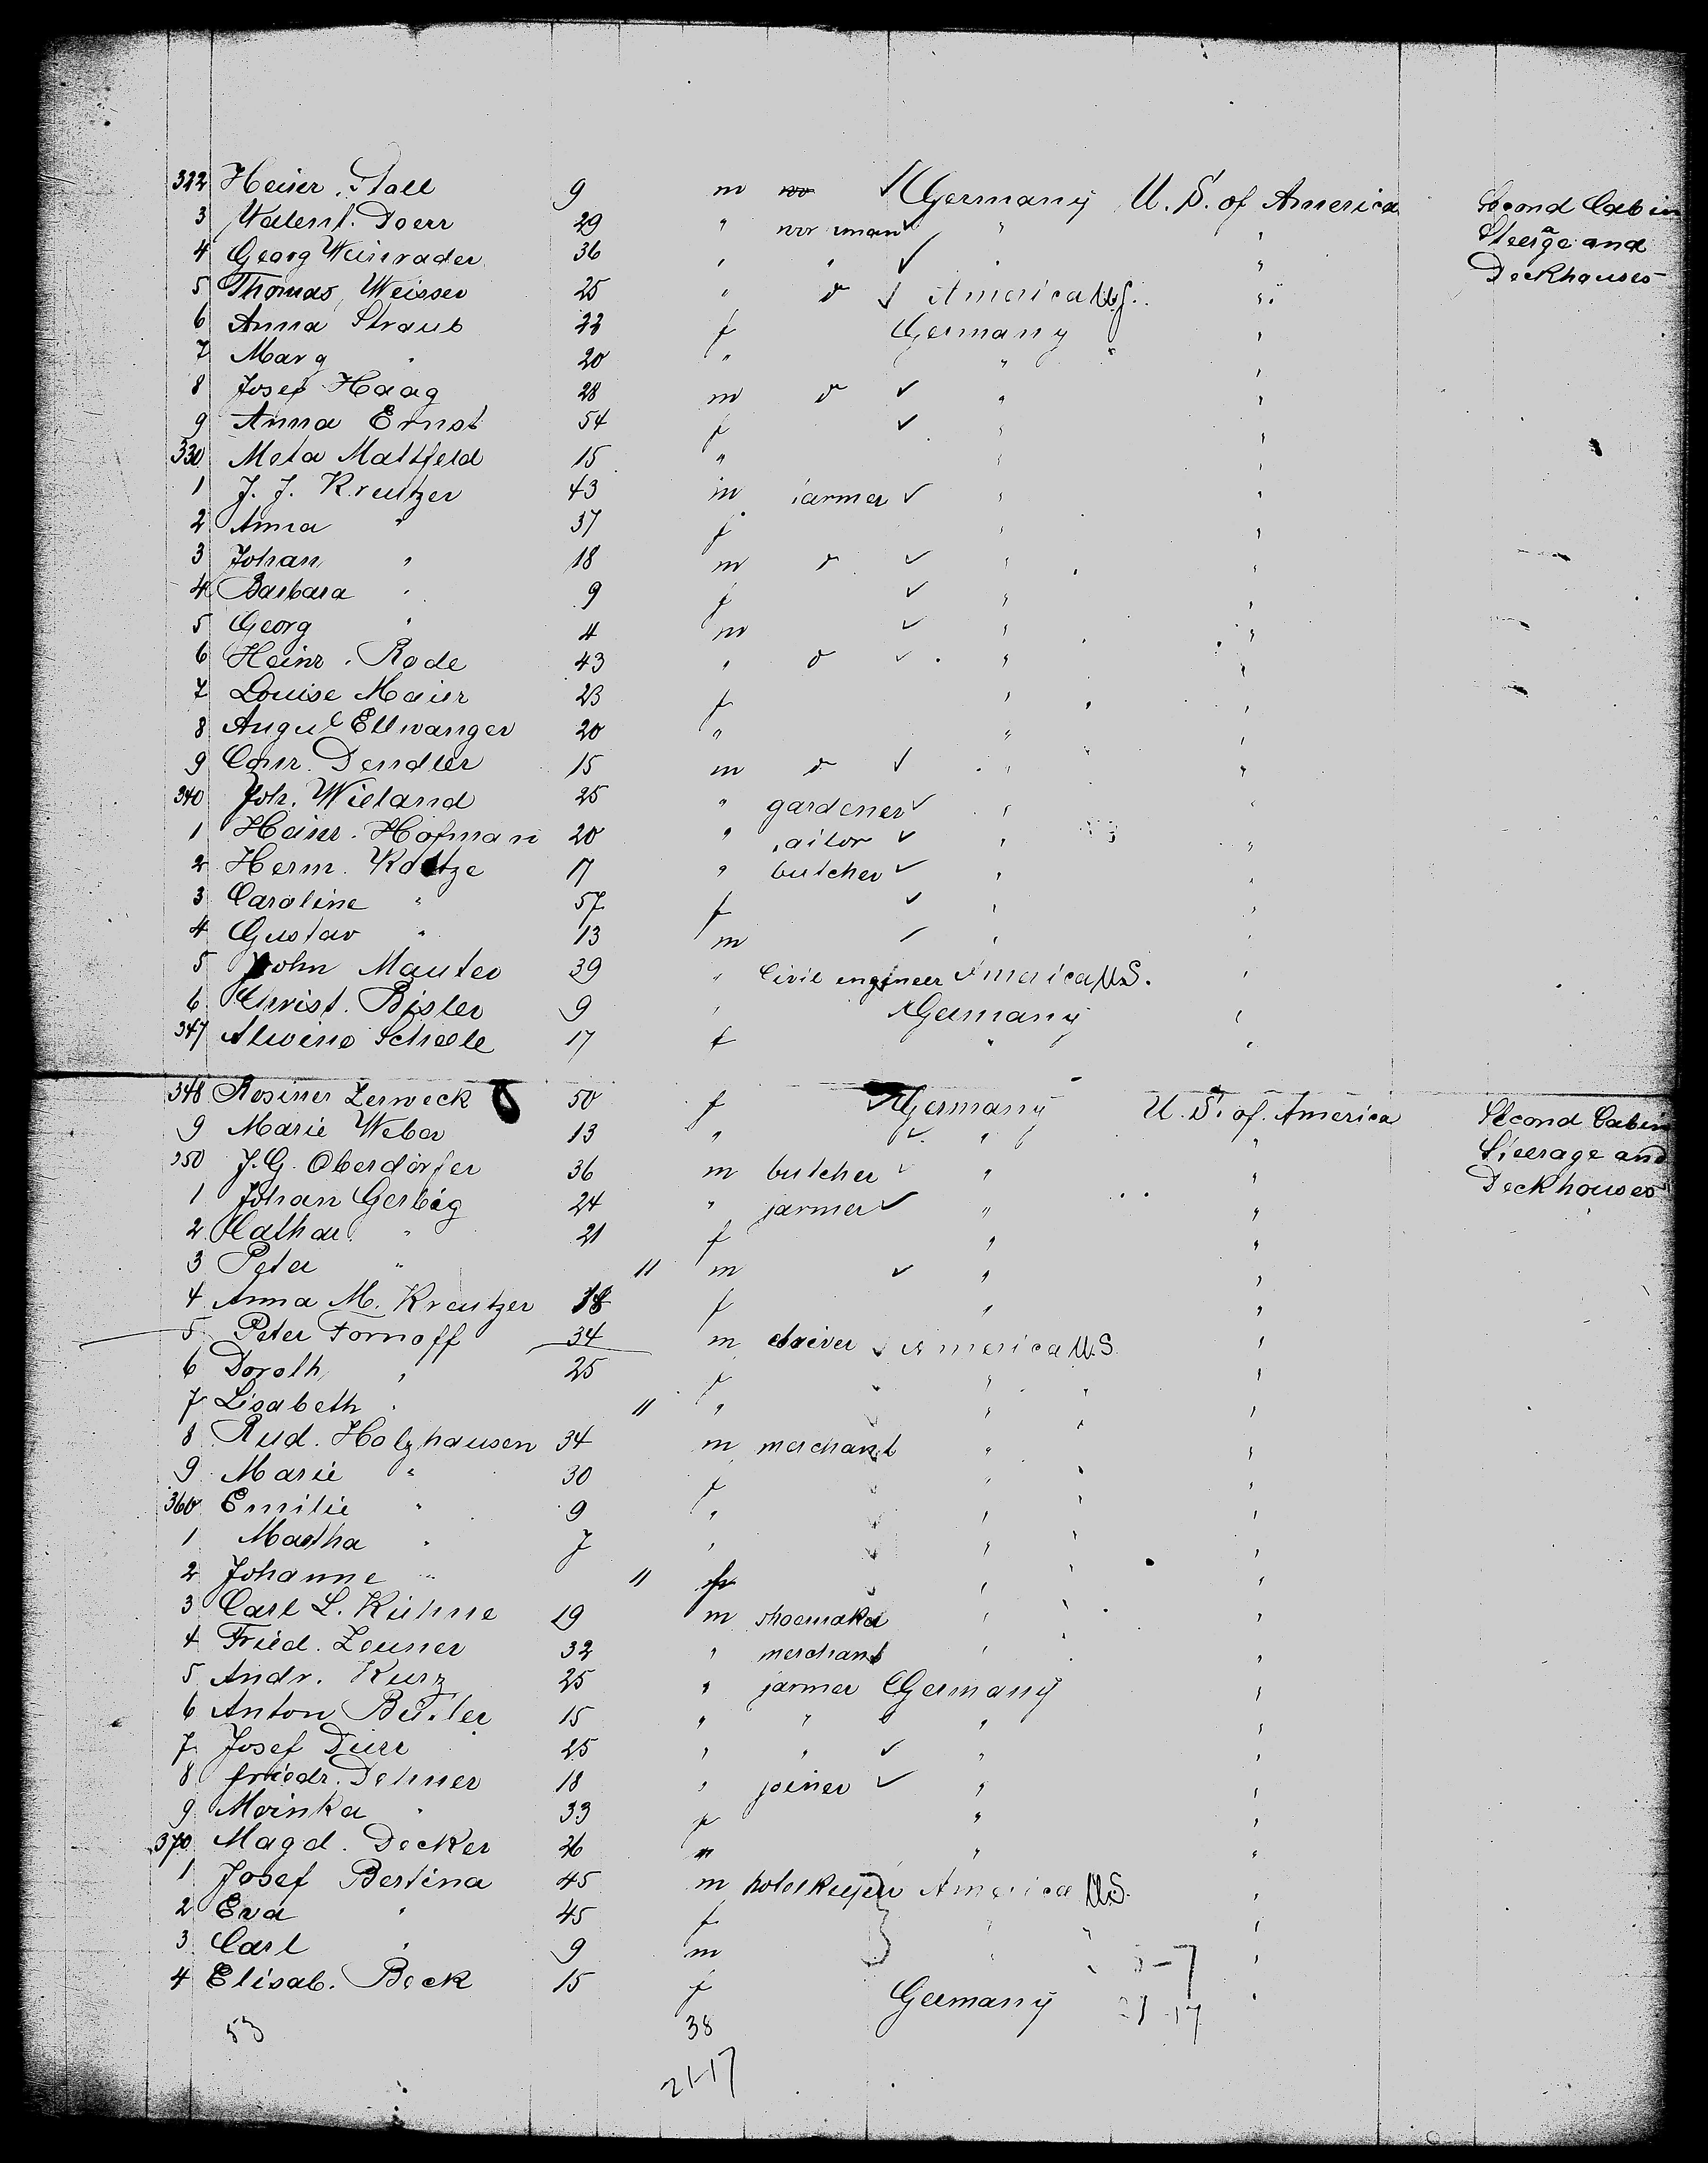 322 Heinr. Stoll 9 m Germany U. S. of America Second Cabin
3 Valent. Doerr 29 " workman " " Steerage and
4 Georg Weinrader 36 " " " " Deckhouses
5 Thomas Weisser 25 " d America U.S. "
6 Anna Straub 22 f Germany "
7 Marg " 20 " " "
8 Josef Haag 28 m d " "
9 Anna Ernst 54 f " "
330 Meta Mattfeld 15 " " "
1 J. J. Kreutzer 43 m farmer " "
2 Anna " 37 f " "
3 Johan " 18 m d " "
4 Barbara " 9 f " "
5 Georg " 4 m " "
6 Heinr. Rode 43 " d " "
7 Louise Maier 23 f " "
8 August Ellwanger 20 " " "
9 Conr. Dendler 15 m d " "
340 Joh. Wieland 25 " gardener " "
1 Heinr. Hofman 20 " " "
2 Herm. Kottze 17 " butcher " "
3 Caroline " 57 f " "
4 Gustav " 13 m " "
5 John Mauter 39 " Civil engineer America U.S. "
6 Christ. Bisler 9 " Germany "
347 Alwine Scheele 17 f " "
348 Rosine Zerweck 50 f Germany U. S. of America Second Cabin
9 Marie Weber 13 " " " Steerage and
350 J. G. Oberdörfer 36 m butcher " " Deckhouses
1 Johan Gerbig 24 " farmer " "
2 Cathar. " 21 f " "
3 Peter " 11 m " "
4 Anna M. Kreutzer 18 f " "
5 Peter Fornoff 34 m driver America U.S. "
6 Doroth. " 25 f " "
7 Lisabeth " 11 " " "
8 Rud. Holzhausen 34 m merchant " "
9 Marie " 30 f " "
360 Emilie " 9 " " "
1 Martha " 7 " " "
2 Johanne " 11 " "
3 Carl L. Kühne 19 m shoemaker " "
4 Fried. Zeuner 32 " merchant " "
5 Andr. Kurz 25 " farmer Germany "
6 Anton 15 " " " "
7 Josef Dürr 25 " " " "
8 Friedr. Dehner 18 " joiner " "
9 Moinka " 33 f " "
370 Magd. Decker 26 " " "
1 Josef Bertina 45 m hotelkeeper America U.S. "
2 Eva " 45 f " " "
3 Carl " 9 m " " "
4 Elisab. Beck 15 f Germany "
53 38
21-17